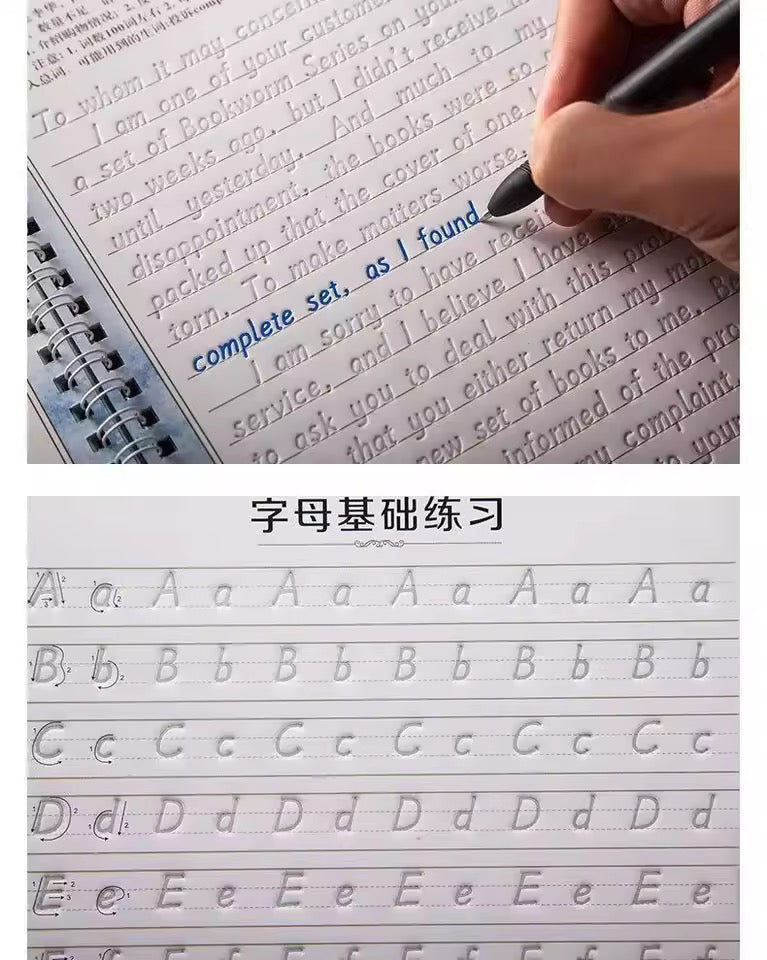 数量不足
介绍购物情况; 2. 
注意: 1. 词数100词左右; 2. 
可能用到的生词: 投诉
To whom it may concern
I am one of your custome
a set of Bookworm Series on you
two weeks ago, but I didn't receive
until yesterday. And much to my
disappointment, the books were so
packed up that the cover of one
torn. To make matters worse,
complete set, as I found
I am sorry to have recei
service, and I believe I have
to ask you to deal with this pro
that you either return my mo
new set of books to me. Be
informed of the pro
my complaint
to your
字母基础练习
A a A a A a A a A a A a
B b B b B b B b B b B b
C c C c C c C c C c C c
D d D d D d D d D d D d
E e E e E e E e E e E e